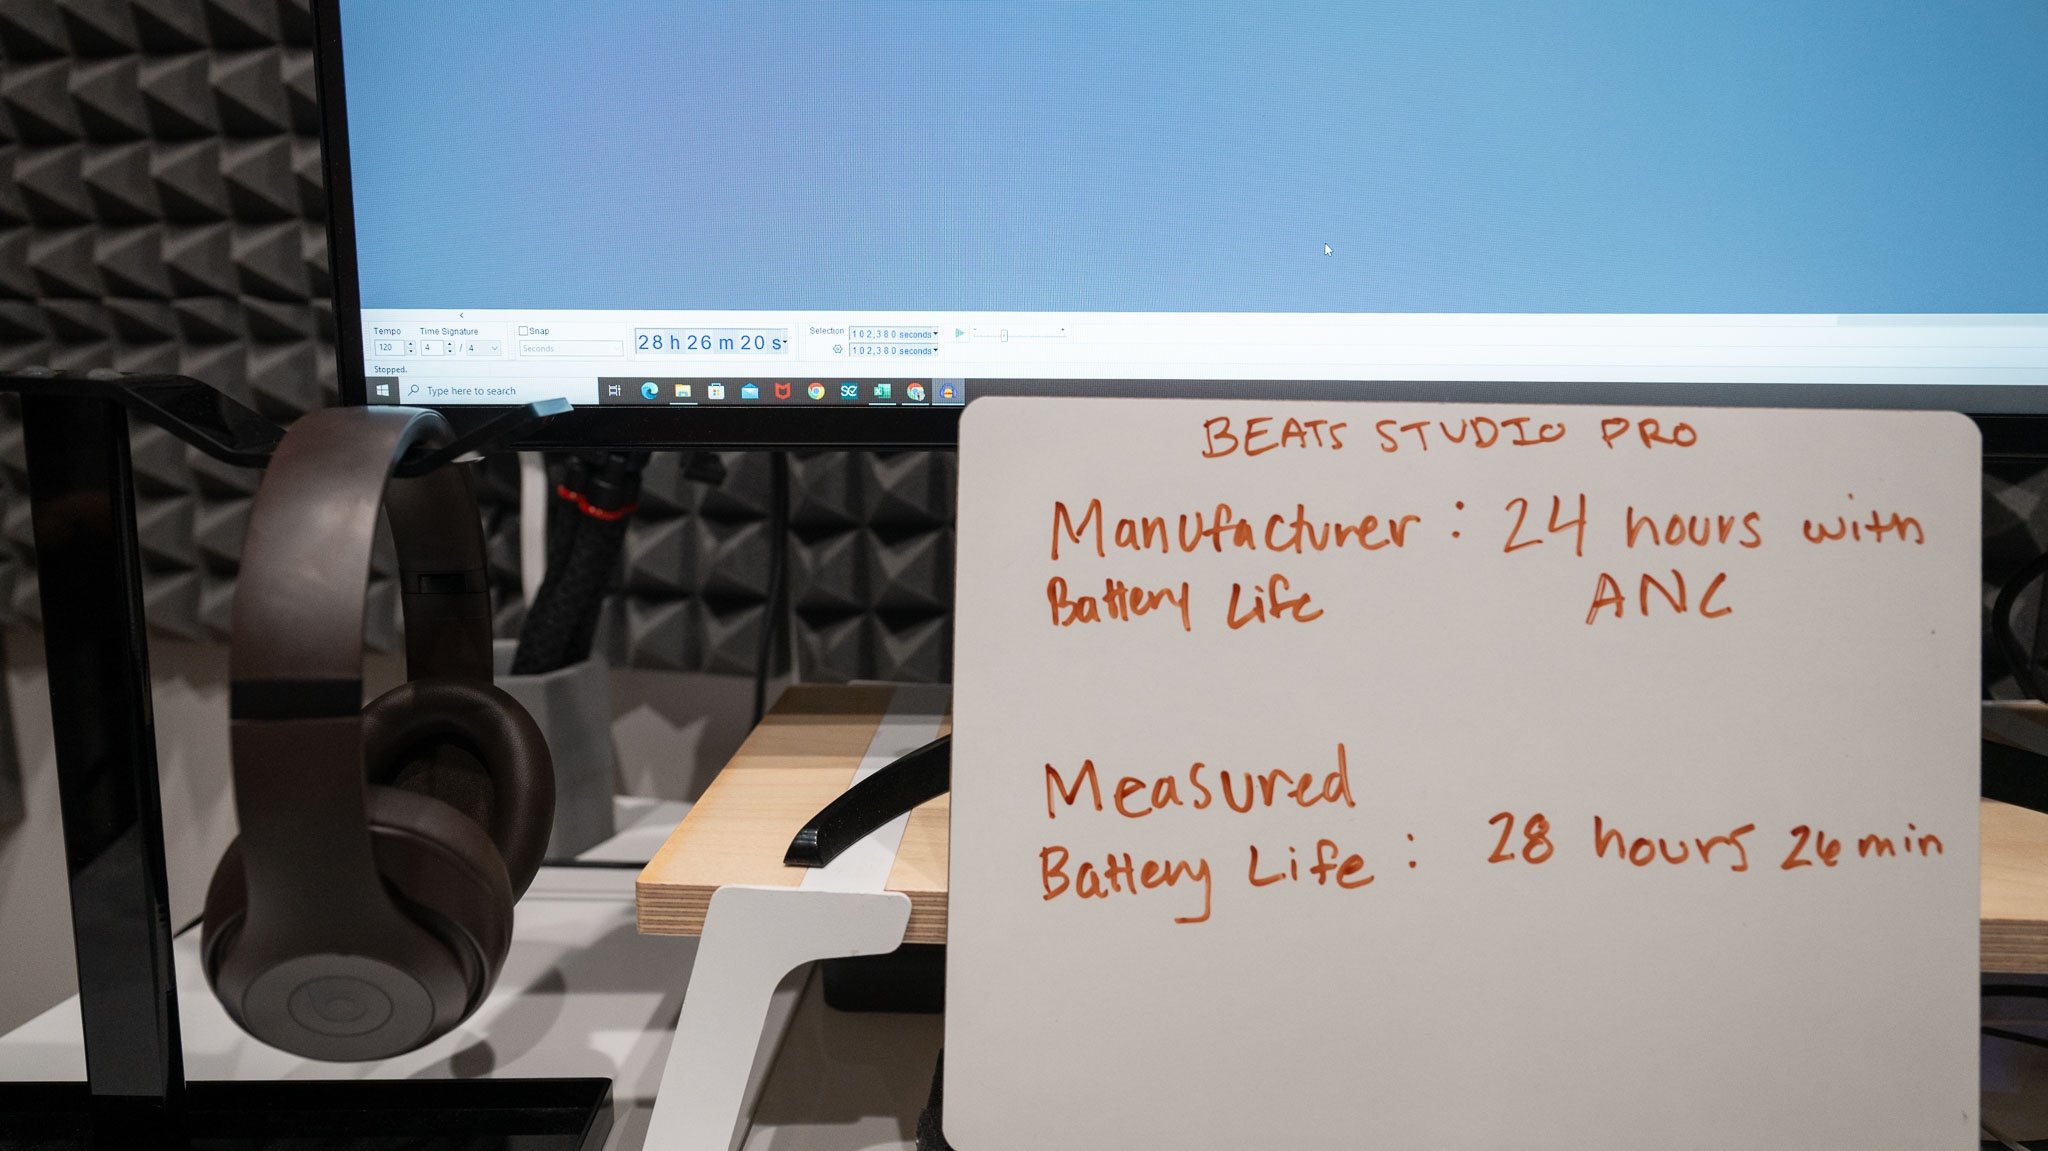 Tempo
Time Signature
Snap
Selection
120
4 / 4
Seconds
28 h 26 m 20 s
102,380 seconds
102,380 seconds
Stopped.
Type here to search
BEATS STUDIO PRO
Manufacturer : 24 hours with
Battery Life ANC
Measured
Battery Life : 28 hours 26 min